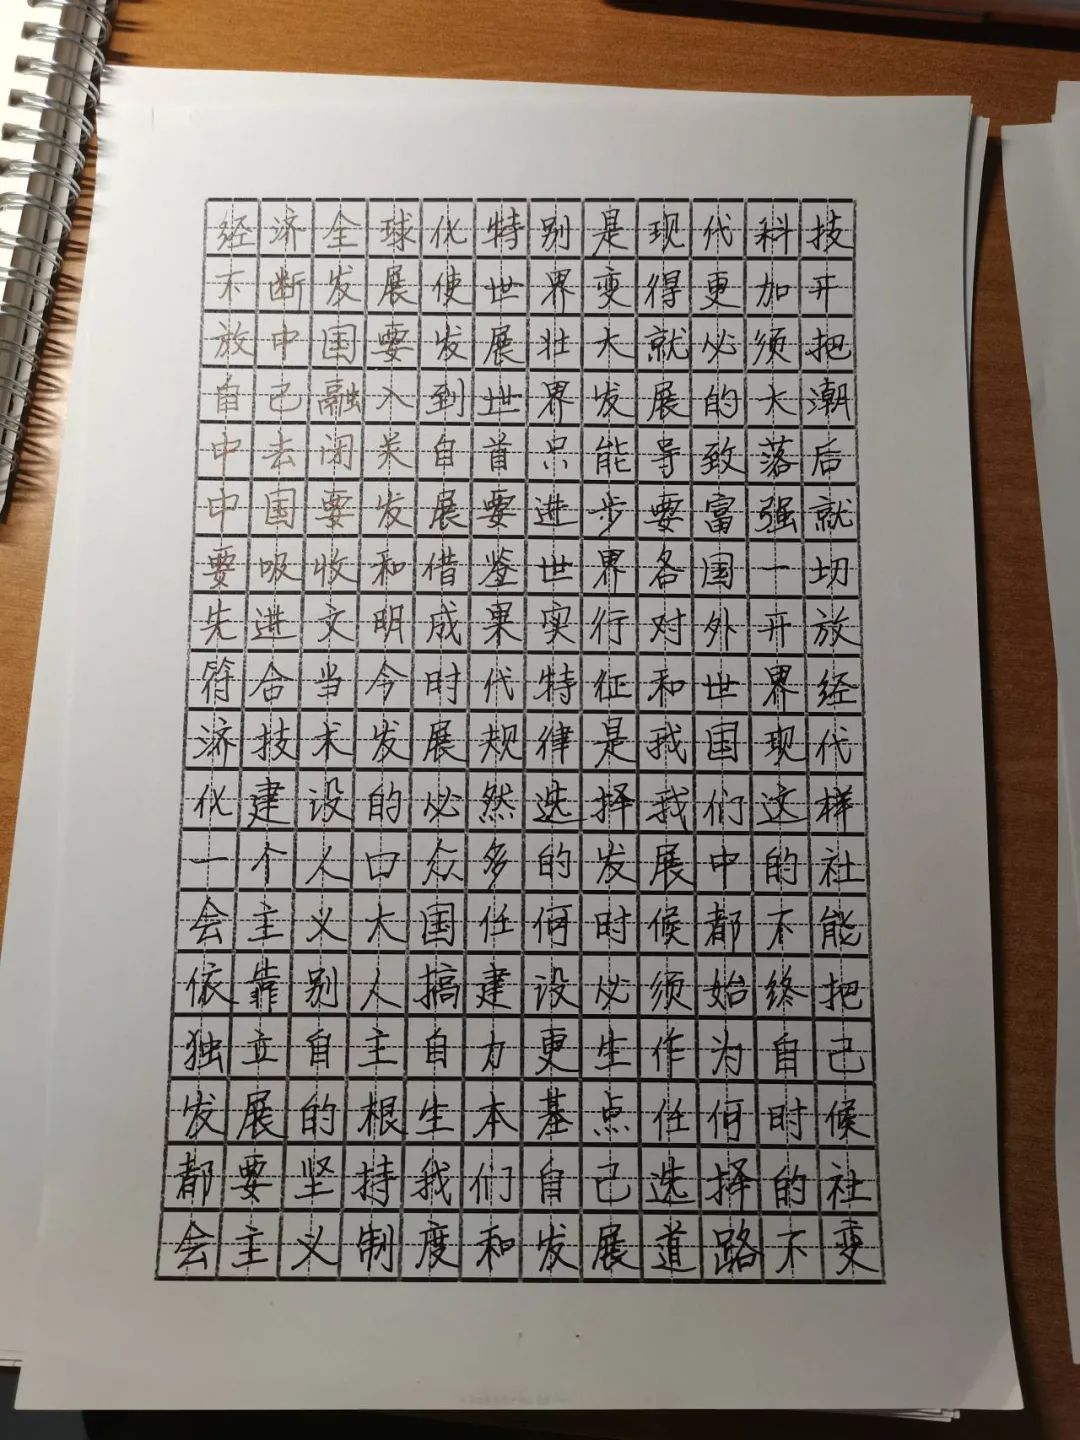 经济全球化特别是现代科技
不断发展使世界变得更加开
放中国要发展壮大就必须把
自己融入到世界发展的大潮
中去闭关自首只能导致落后
中国要发展要进步要富强就
要吸收和借鉴世界各国一切
先进文明成果实行对外开放
符合当今时代特征和世界经
济技术发展规律是我国现代
化建设的必然选择我们这样
一个人口众多的发展中的社
会主义大国任何时候都不能
依靠别人搞建设必须始终把
独立自主自力更生作为自己
发展的根生本基点任何时候
都要坚持我们自己选择的社
会主义制度和发展道路不变